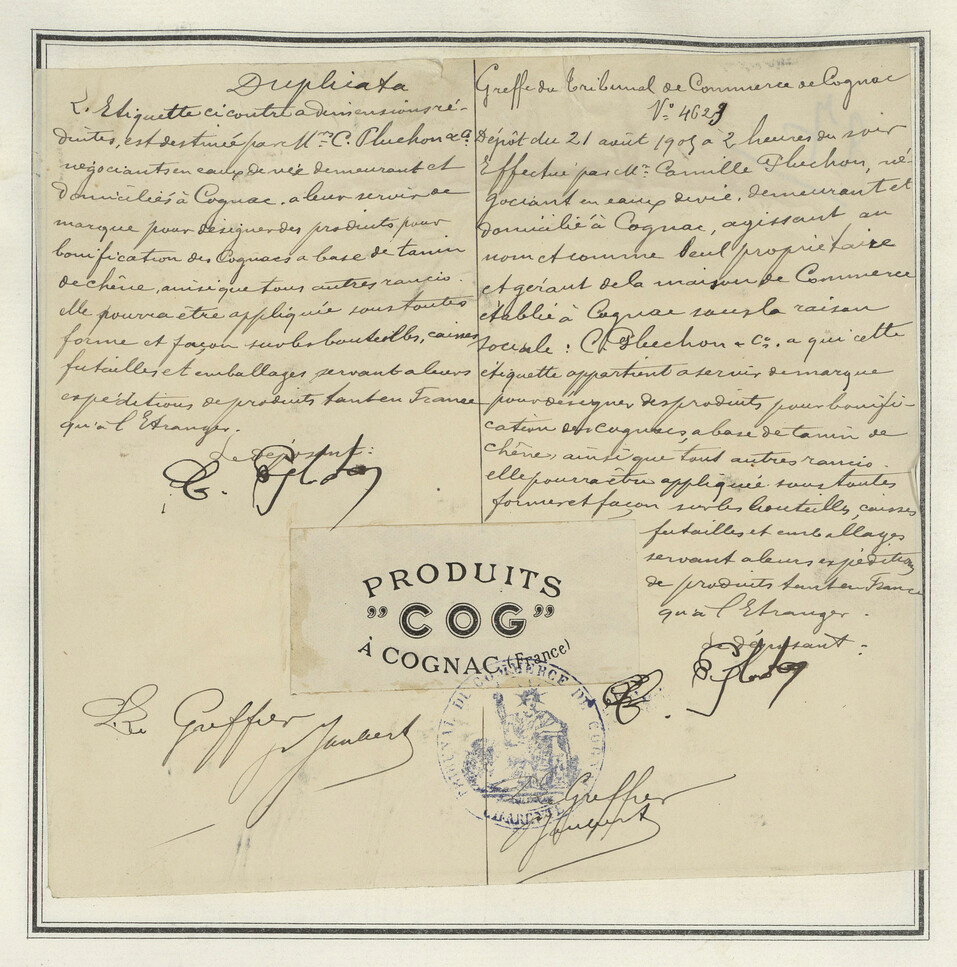 Duplicata
L'Etiquette ci contre a dimensions ré-
duites, est destinée par Mrs C. Pluchon & Cie
négociants en eaux de vie demeurant et
domiciliés à Cognac, a leur servir de
marque pour désigner des produits pour
bonification des Cognacs a base de tanin
de chêne, ainsi que tous autres rancio.
elle pourra être appliquée sous toutes
forme et façon sur les bouteilles, caisses
futailles et emballages servant a leurs
expéditions de produits tant en France
qu'à l'Etranger.
Le déposant:
C. Pluchon
Le Greffier
Jaubert
Greffe du Tribunal de Commerce de Cognac
No 4623
Dépôt du 21 août 1905 à 2 heures du soir
Effectué par Mr Camille Pluchon, né-
gociant en eaux de vie, demeurant et
domicilié à Cognac, agissant au
nom et comme seul propriétaire
et gérant de la maison de Commerce
établie à Cognac sous la raison
sociale: C. Pluchon & Cie. a qui cette
étiquette appartient a servir de marque
pour désigner des produits pour bonifi-
cation des cognacs, a base de tanin de
chêne, ainsi que tout autres rancio.
elle pourra être appliquée sous toutes
formes et façon sur les bouteilles, caisses
futailles et emballages
servant a leurs expéditions
de produits tant en France
qu'à l'Etranger.
Le déposant:
C. Pluchon
PRODUITS
"COG"
À COGNAC (France)
TRIBUNAL DE COMMERCE DE COGNAC
CHARENTE
Le Greffier
Jaubert